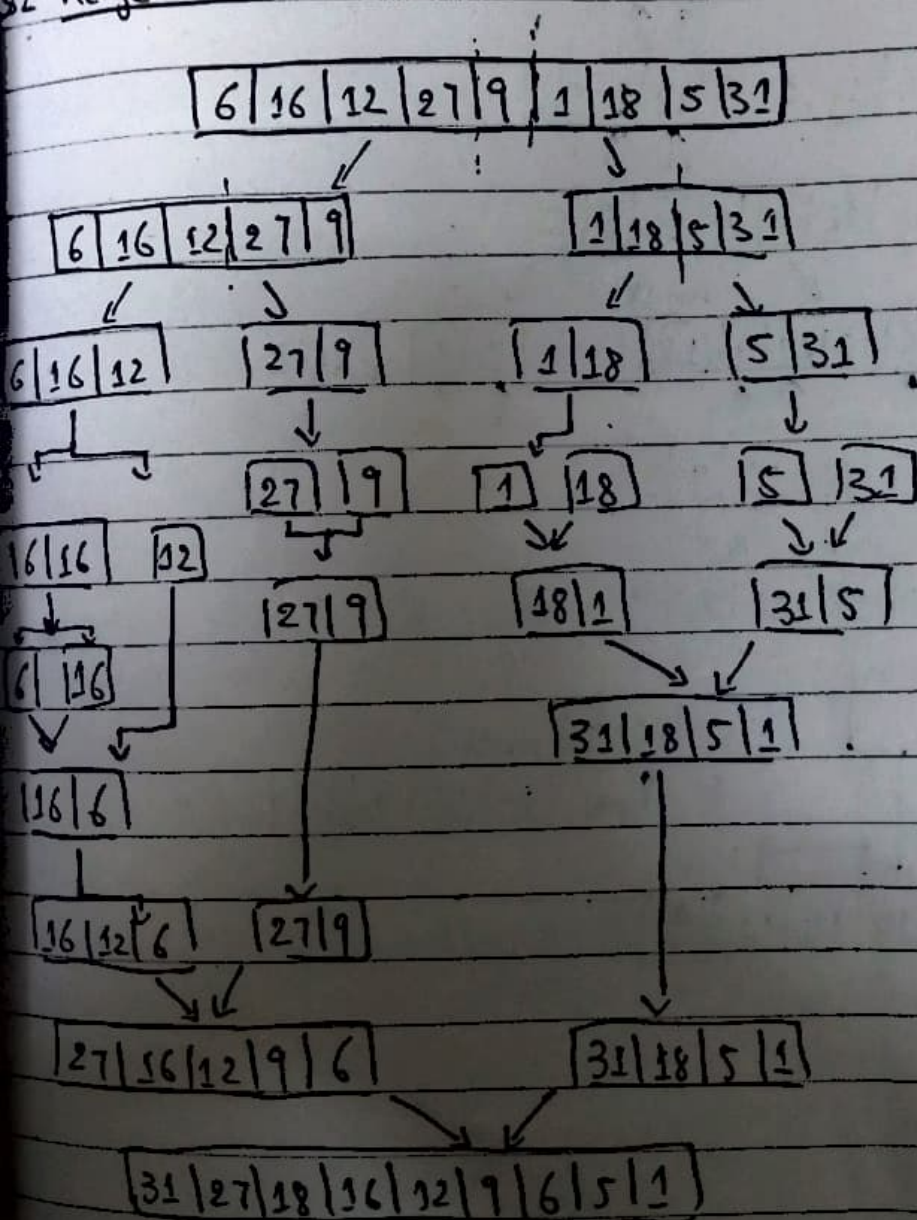 6 | 16 | 12 | 27 | 9 | 1 | 18 | 5 | 31
6 | 16 | 12 | 27 | 9 1 | 18 | 5 | 31
6 | 16 | 12 27 | 9 1 | 18 5 | 31
27 9 1 18 5 31
16 | 16 12
27 | 9 18 | 1 31 | 5
6 | 16
31 | 18 | 5 | 1
16 | 6
16 | 12 | 6 27 | 9
27 | 16 | 12 | 9 | 6 31 | 18 | 5 | 1
31 | 27 | 18 | 16 | 12 | 9 | 6 | 5 | 1